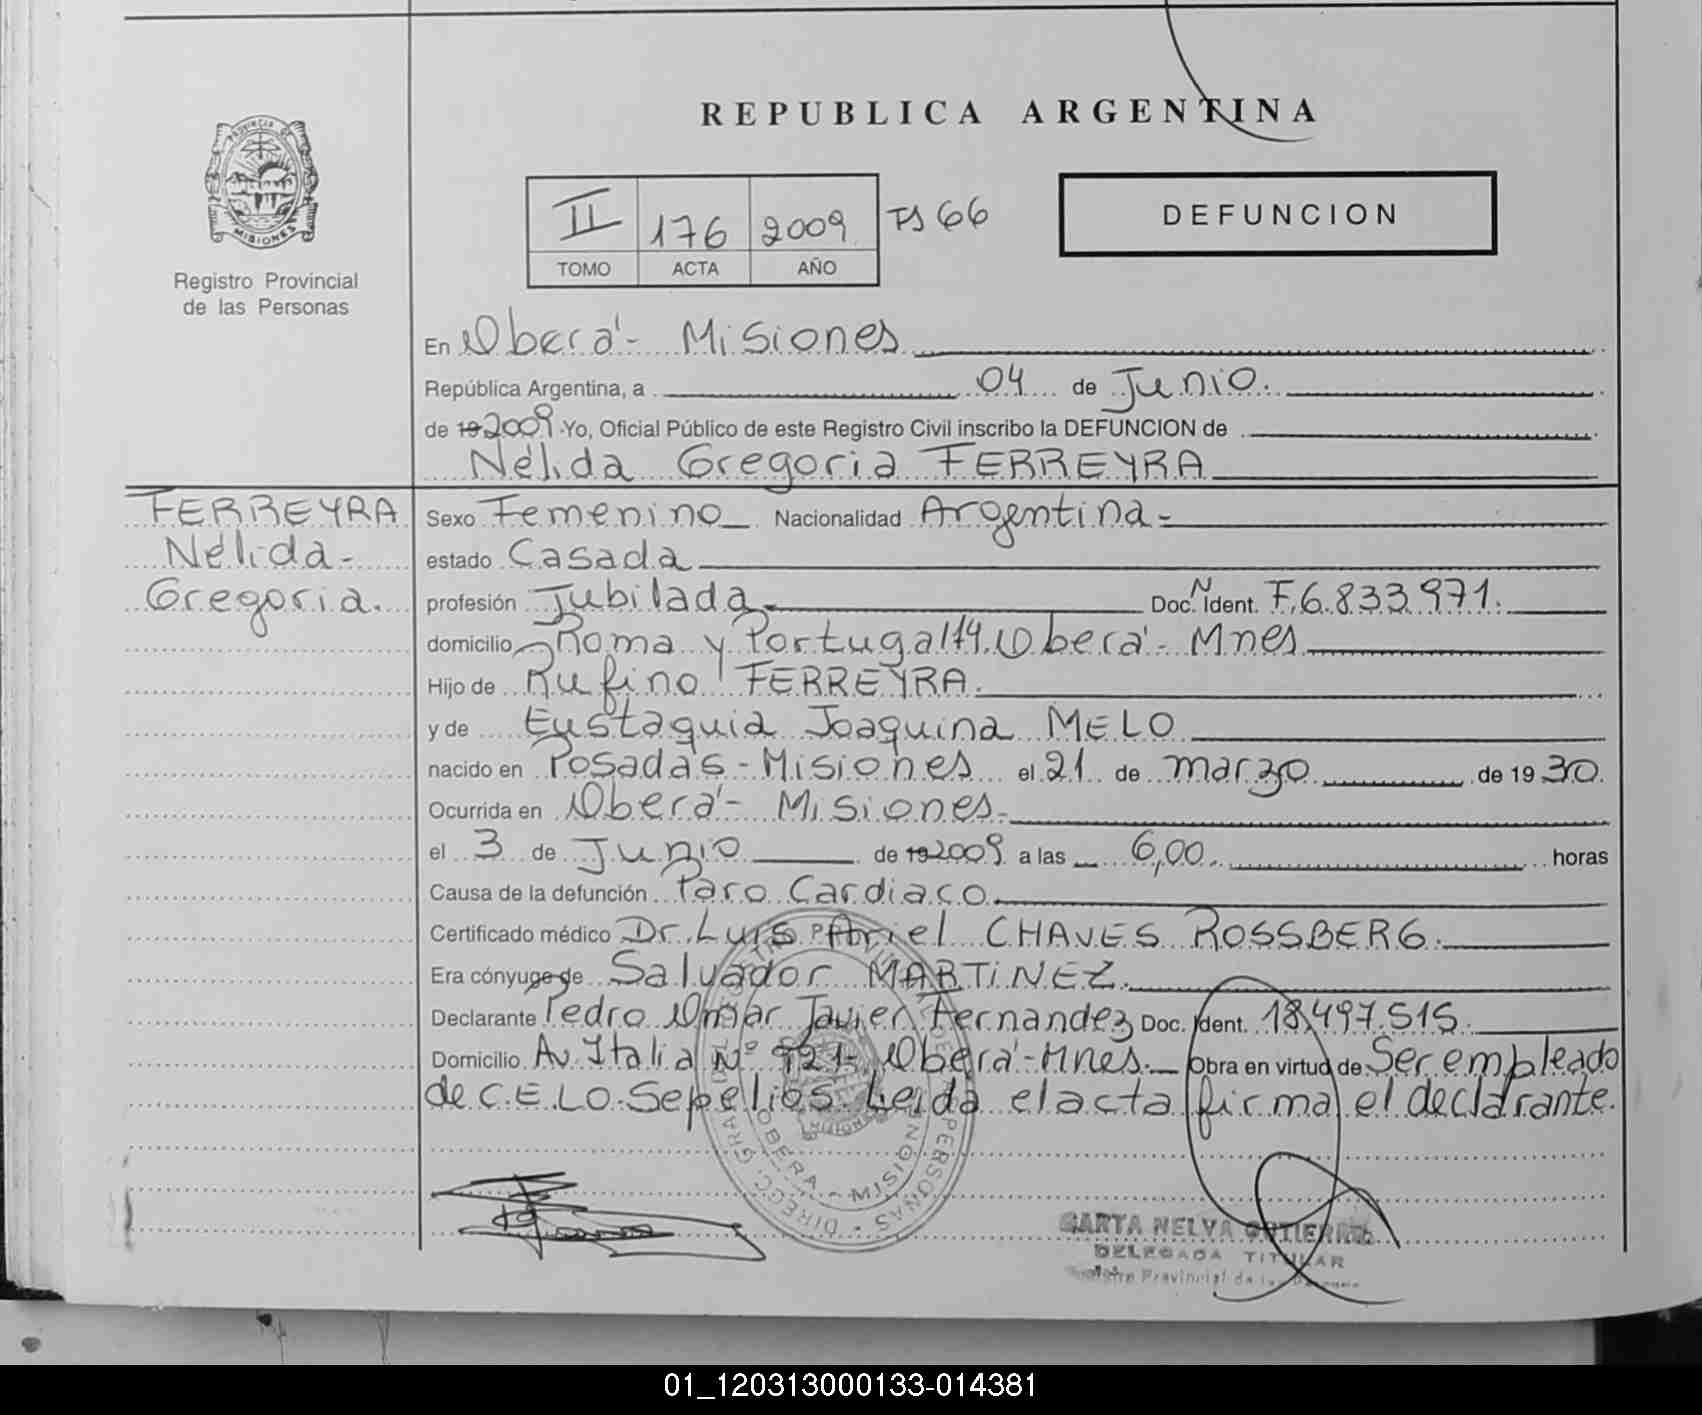 REPUBLICA ARGENTINA
PROVINCIA DE
MISIONES
Registro Provincial
de las Personas
II 176 2009 Fs 66
TOMO ACTA AÑO
DEFUNCION
En Oberá - Misiones
República Argentina, a 04 de Junio.
de 19 2009 Yo, Oficial Público de este Registro Civil inscribo la DEFUNCION de
Nélida Gregoria FERREYRA
FERREYRA
Nélida-
Gregoria.
Sexo Femenino Nacionalidad Argentina-
estado Casada
profesión Jubilada- Doc. N Ident. F.6.833.971.
domicilio Roma y Portugal Oberá - Mnes
Hijo de Rufino FERREYRA.
y de Eustaquia Joaquina MELO
nacido en Posadas - Misiones el 21 de marzo de 19 30.
Ocurrida en Oberá - Misiones-
el 3 de Junio de 19 2009 a las 6,00 horas
Causa de la defunción Paro Cardiaco.
Certificado médico Dr. Luis Ariel CHAVES ROSSBERG.
Era cónyuge de Salvador MARTINEZ.
Declarante Pedro Omar Javier Fernandez Doc. Ident. 18.497.515.
Domicilio Av. Italia Nº 121- Oberá - Mnes. Obra en virtud de Ser empleado
de C.E.L.O. Sepelios. Leida el acta firma el declarante.
OBERA - MISIONES
MISIONES
DELEGADA TITULAR
01_120313000133-014381